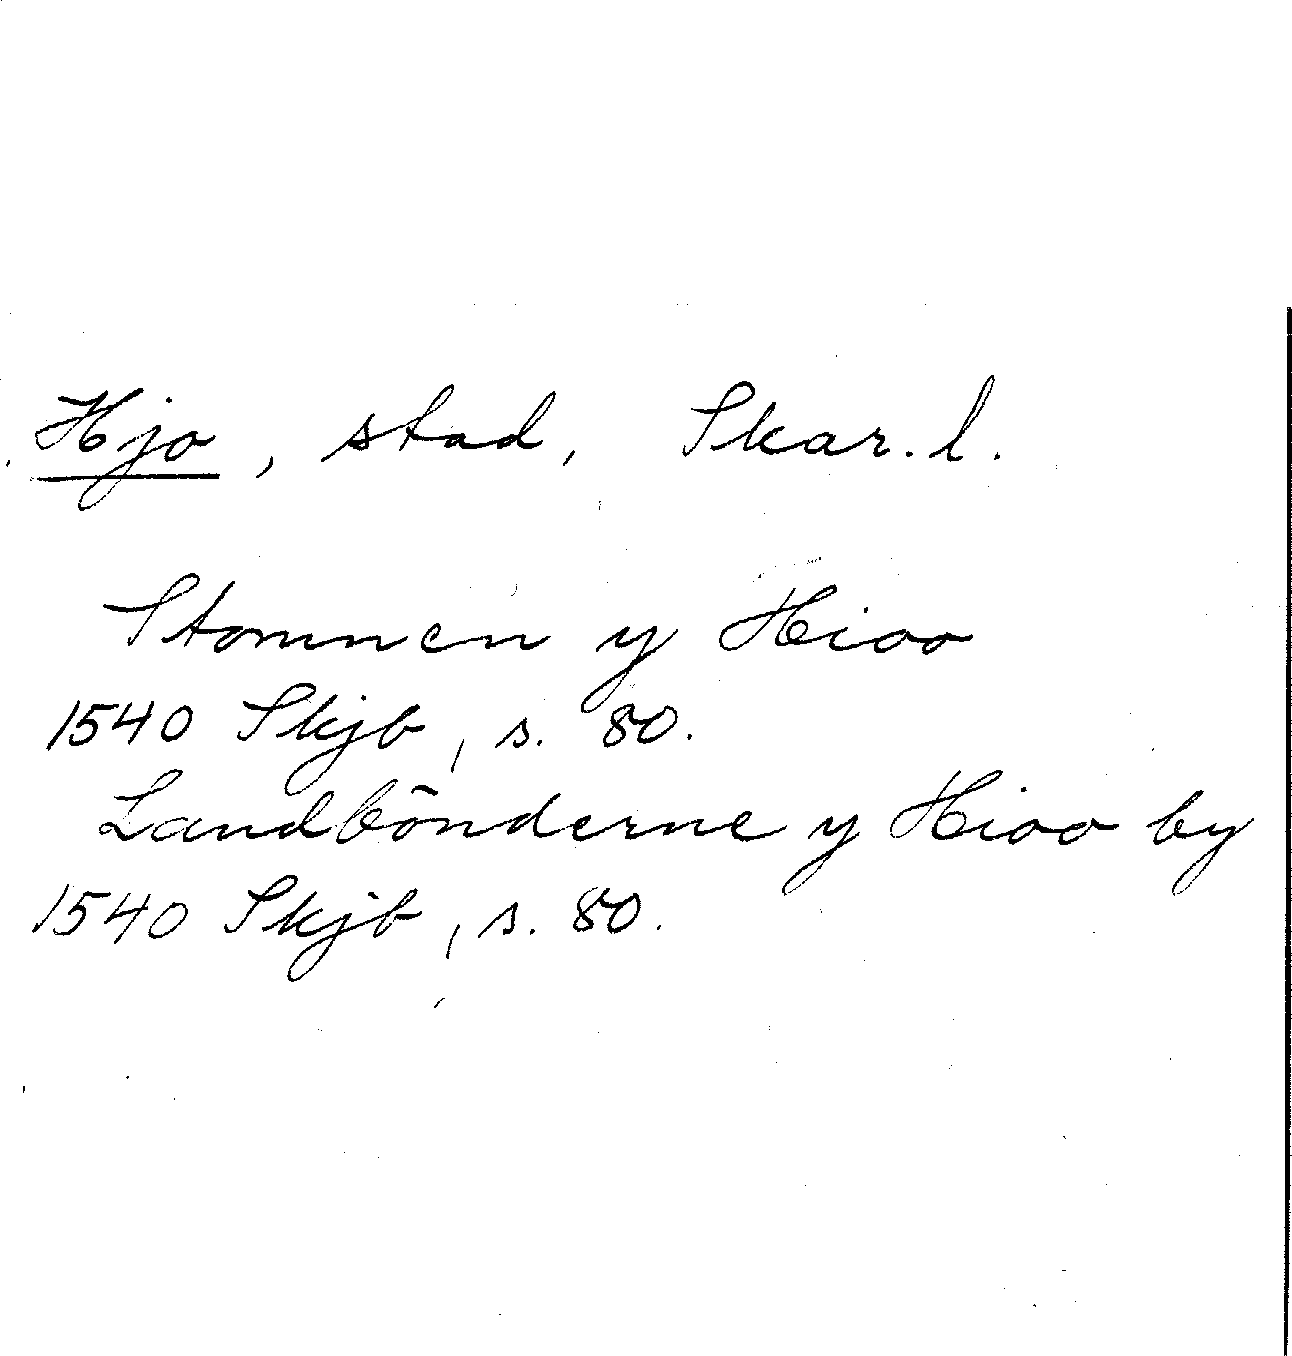 Hjo, stad, Skar. l.
Stomnen y Hioo
1540 Skjb, s. 80.
Landbönderne y Hioo by
1540 Skjb, s. 80.